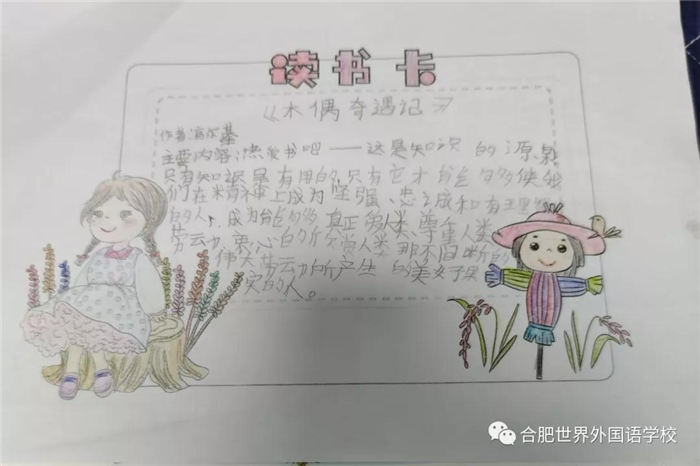 读书卡
《木偶奇遇记》
作者：高尔基
主要内容：热爱书吧——这是知识的源泉
只有知识是有用的，只有它才能够使我
们在精神上成为坚强、忠诚和有理智
的人，成为能够真正爱人类、尊重人类
劳动、衷心地欣赏人类那不间断的
伟大劳动所产生的美好果
实的人。
合肥世界外国语学校